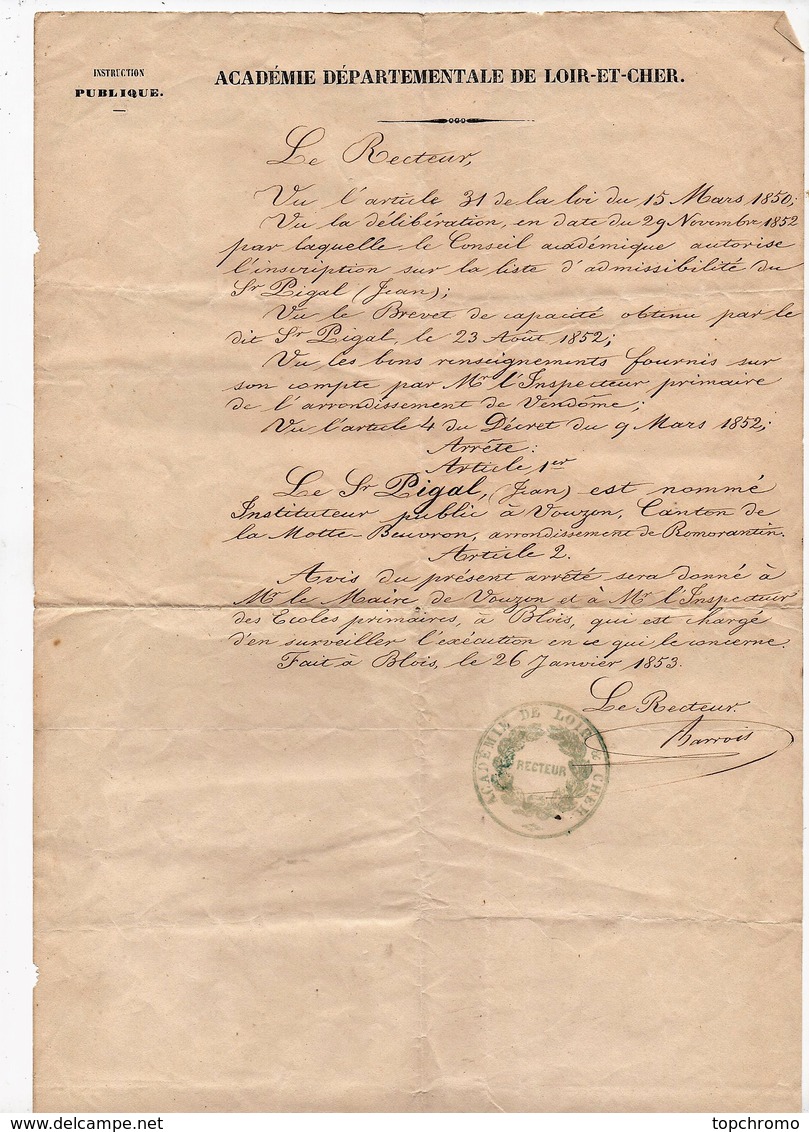 INSTRUCTION
PUBLIQUE.
ACADÉMIE DÉPARTEMENTALE DE LOIR-ET-CHER.
Le Recteur,
Vu l'article 31 de la loi du 15 Mars 1850;
Vu la délibération, en date du 29 Novembre 1852
par laquelle le Conseil académique autorise
l'inscription sur la liste d'admissibilité du
Sr Pigal (Jean);
Vu le Brevet de capacité obtenu par le
dit Sr Pigal, le 23 Août 1852;
Vu les bons renseignements fournis sur
son compte par Mr l'Inspecteur primaire
de l'arrondissement de Vendôme;
Vu l'article 4 du Décret du 9 Mars 1852;
Arrête:
Article 1er
Le Sr Pigal, (Jean) est nommé
Instituteur public à Vouzon, Canton de
la Motte-Beuvron, arrondissement de Romorantin.
Article 2.
Avis du présent arrêté sera donné à
Mr le Maire de Vouzon et à Mr l'Inspecteur
des Ecoles primaires, à Blois, qui est chargé
d'en surveiller l'exécution en ce qui le concerne.
Fait à Blois, le 26 Janvier 1853.
Le Recteur.
Barrois
ACADÉMIE DE LOIR & CHER.
RECTEUR
www.delcampe.net
topchromo